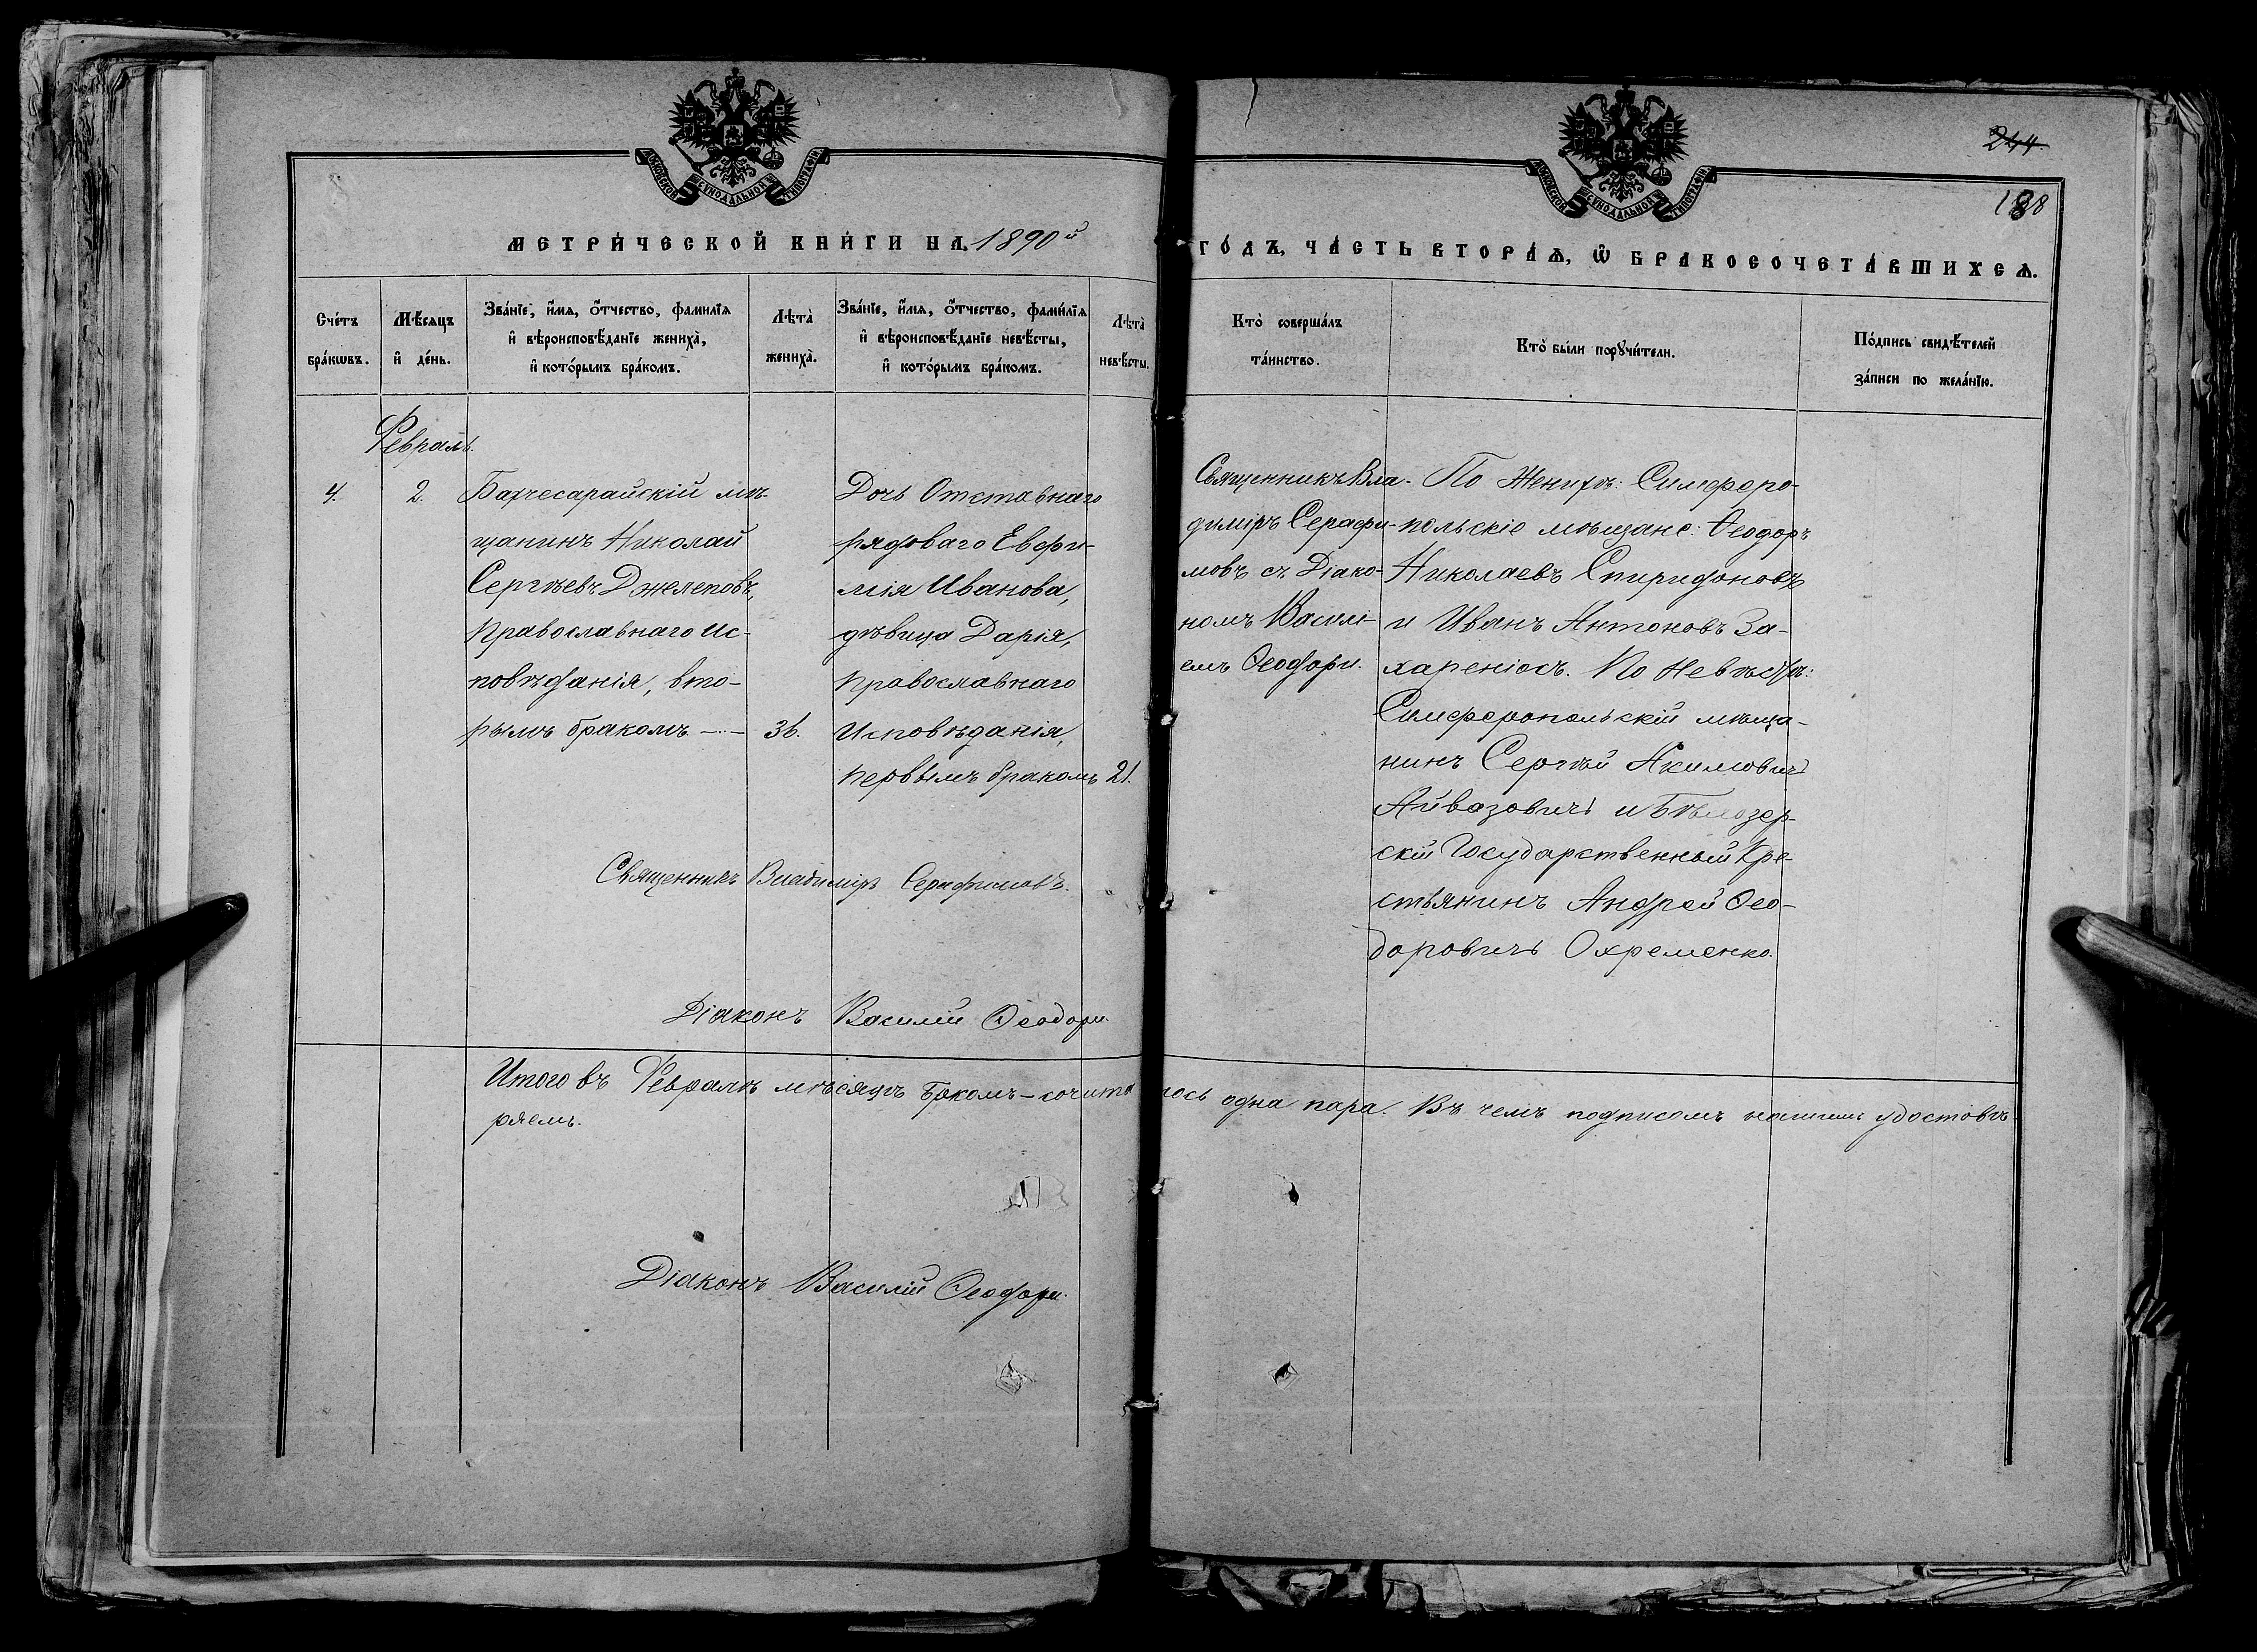 МОСКОВСКОЙ СУНОДАЛЬНОЙ ТИПОГРАФІИ
МОСКОВСКОЙ СУНОДАЛЬНОЙ ТИПОГРАФІИ
244.
188
МЕТРИ́ЧЕСКОЙ КНИ́ГИ НА 1890й
ГО́ДЪ, ЧА́СТЬ ВТОРА́Ѧ, Ѽ БРАКОСОЧЕТА́ВШИХСѦ.
Сче́тъ
бра́кѡвъ.
Мѣ́сѧцъ
и҆ де́нь.
Зва́нїе, и҆́мѧ, ѻ҆́тчество, фами́лїѧ
и҆ вѣроисповѣ́данїе жениха̀,
и҆ кото́рымъ бра́комъ.
Лѣта̀
жениха̀.
Зва́нїе, и҆́мѧ, ѻ҆́тчество, фами́лїѧ
и҆ вѣроисповѣ́данїе невѣ́сты,
и҆ кото́рымъ бра́комъ.
Лѣта̀
невѣ́сты.
Кто̀ соверша́лъ
та́инство.
Кто̀ бы́ли порꙋчи́тели.
По́дпись свидѣ́телей
за́писи по жела́нїю.
Февраль.
4.
2.
Бахчесарайскій мѣ-
щанинъ Николай
Сергѣевъ Джелеповъ,
Православнаго Ис-
повѣданія, вто-
рымъ бракомъ
36.
Дочь Отставнаго
рядоваго Евфи-
мія Иванова,
дѣвица Дарія,
Православнаго
Исповѣданія,
первымъ бракомъ
21.
Священникъ Вла-
диміръ Серафи-
мовъ съ Діако-
номъ Василі-
емъ Ѳеодори.
По Женихѣ: Симферо-
польскіе мѣщане: Ѳеодоръ
Николаевъ Спиридоновъ
и Иванъ Антоновъ За-
хареніосъ. По Невѣстѣ:
Симферопольскій мѣща-
нинъ Сергѣй Акимовичъ
Айвазовичъ и Бѣлозер-
скій Государственный Кре-
стьянинъ Андрей Ѳео-
доровичъ Охременко.
Священникъ Владиміръ Серафимовъ.
Діаконъ Василій Ѳеодори.
Итого въ Февралѣ мѣсяцѣ Бракомъ-сочиталось одна пара. Въ чемъ подписомъ нашимъ удостовѣ-
ряемъ.
Діаконъ Василій Ѳеодори.